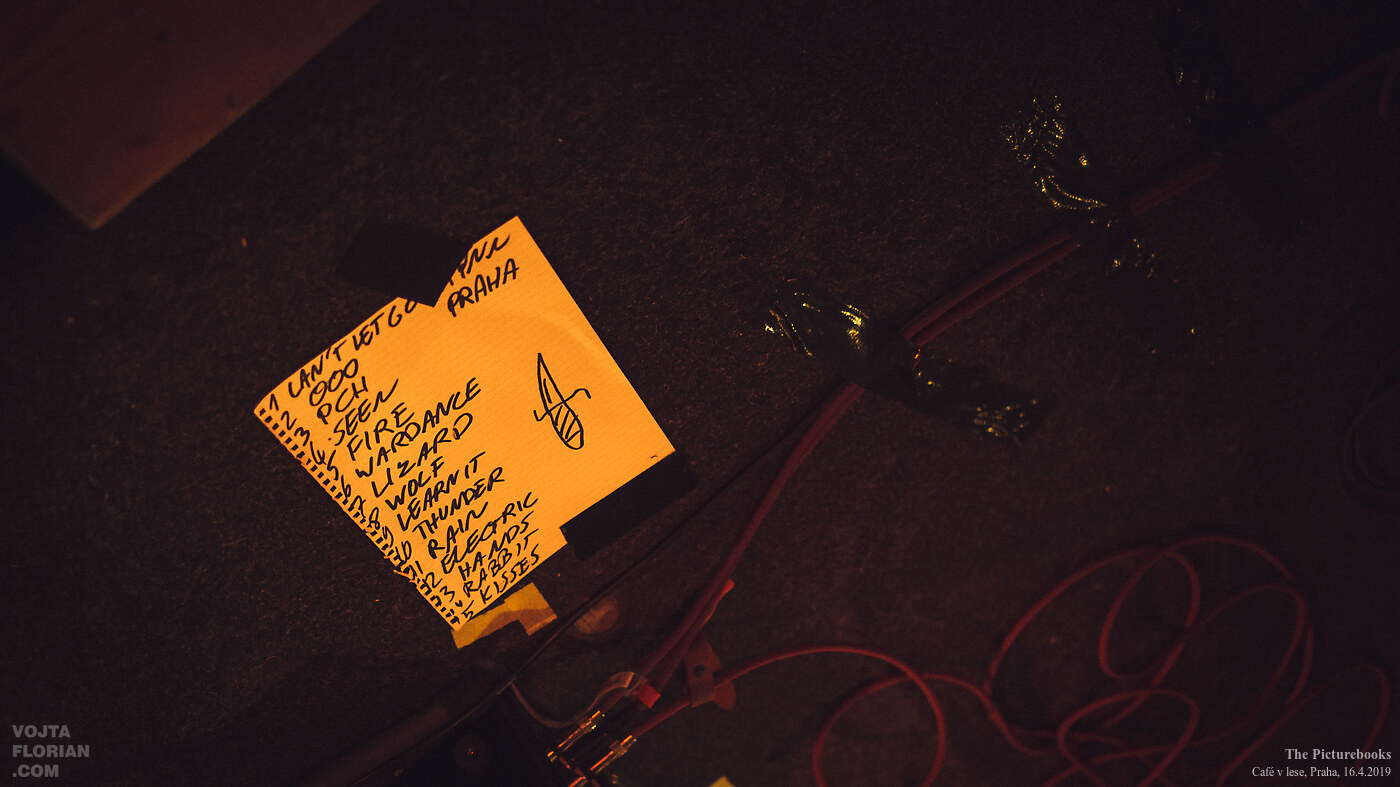 PRAHA
1 CAN'T LET GO
2 OOO
3 PCH
4 SEEN
5 FIRE
6 WARDANCE
7 LIZARD
8 WOLF
9 LEARN IT
10 THUNDER
11 RAIN
12 ELECTRIC
13 HANDS
RABBIT
15 KISSES
VOJTA
FLORIAN
.COM
The Picturebooks
Café v lese, Praha, 16.4.2019